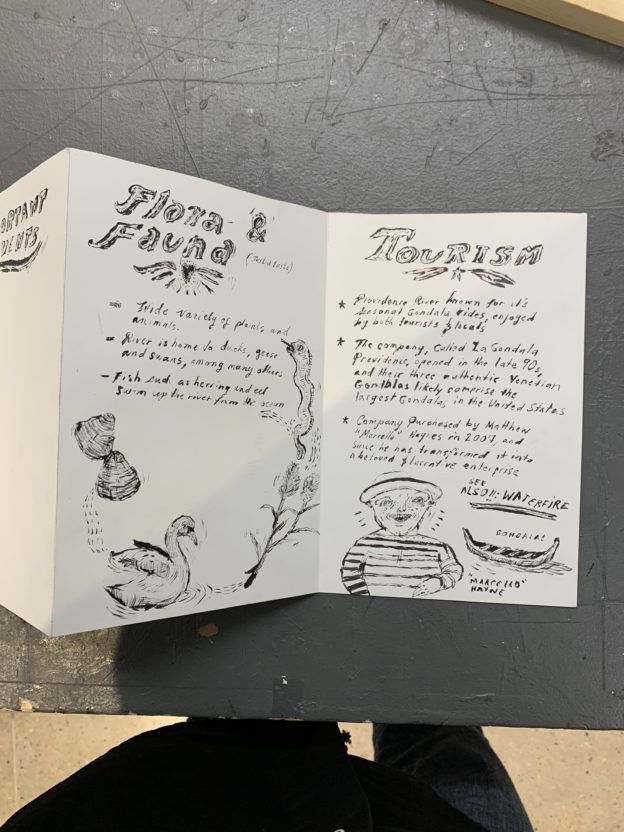 ORTANT
MENTS
Flora &
Fauna
(Just a taste)
- Wide variety of plants and
animals.
- River is home to ducks, geese
and swans, among many others
- Fish such as herring and eel
swim up the river from the ocean
TOURISM
★ Providence River known for it's
seasonal Gondala rides, enjoyed
by both tourists & locals
★ The company, called La Gondala
Providence, opened in the late 90s,
and their three authentic Venetian
Gondalas likely comprise the
largest Gondalas in the United States
★ Company purchased by Matthew
"Marcello" Haynes in 2007, and
since he has transformed it into
a beloved & lucrative enterprise
SEE
ALSO!!: WATERFIRE
GONDALA!
"MARCELLO"
HAYNE